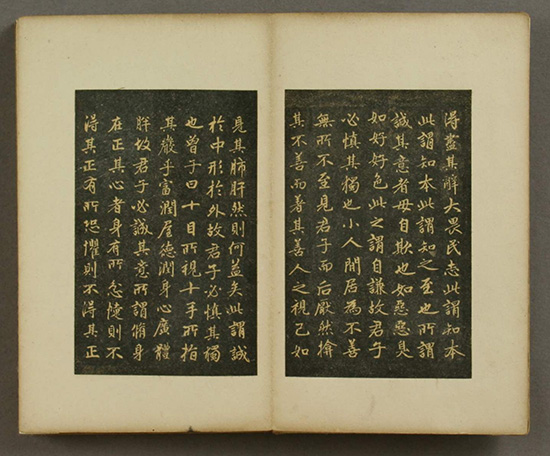 得盡其辭大畏民志此謂知本
此謂知本此謂知之至也所謂
誠其意者毋自欺也如惡惡臭
如好好色此之謂自謙故君子
必慎其獨也小人閒居為不善
無所不至見君子而后厭然揜
其不善而著其善人之視己如
見其肺肝然則何益矣此謂誠
於中形於外故君子必慎其獨
也曾子曰十目所視十手所指
其嚴乎富潤屋德潤身心廣體
胖故君子必誠其意所謂脩身
在正其心者身有所忿懥則不
得其正有所恐懼則不得其正